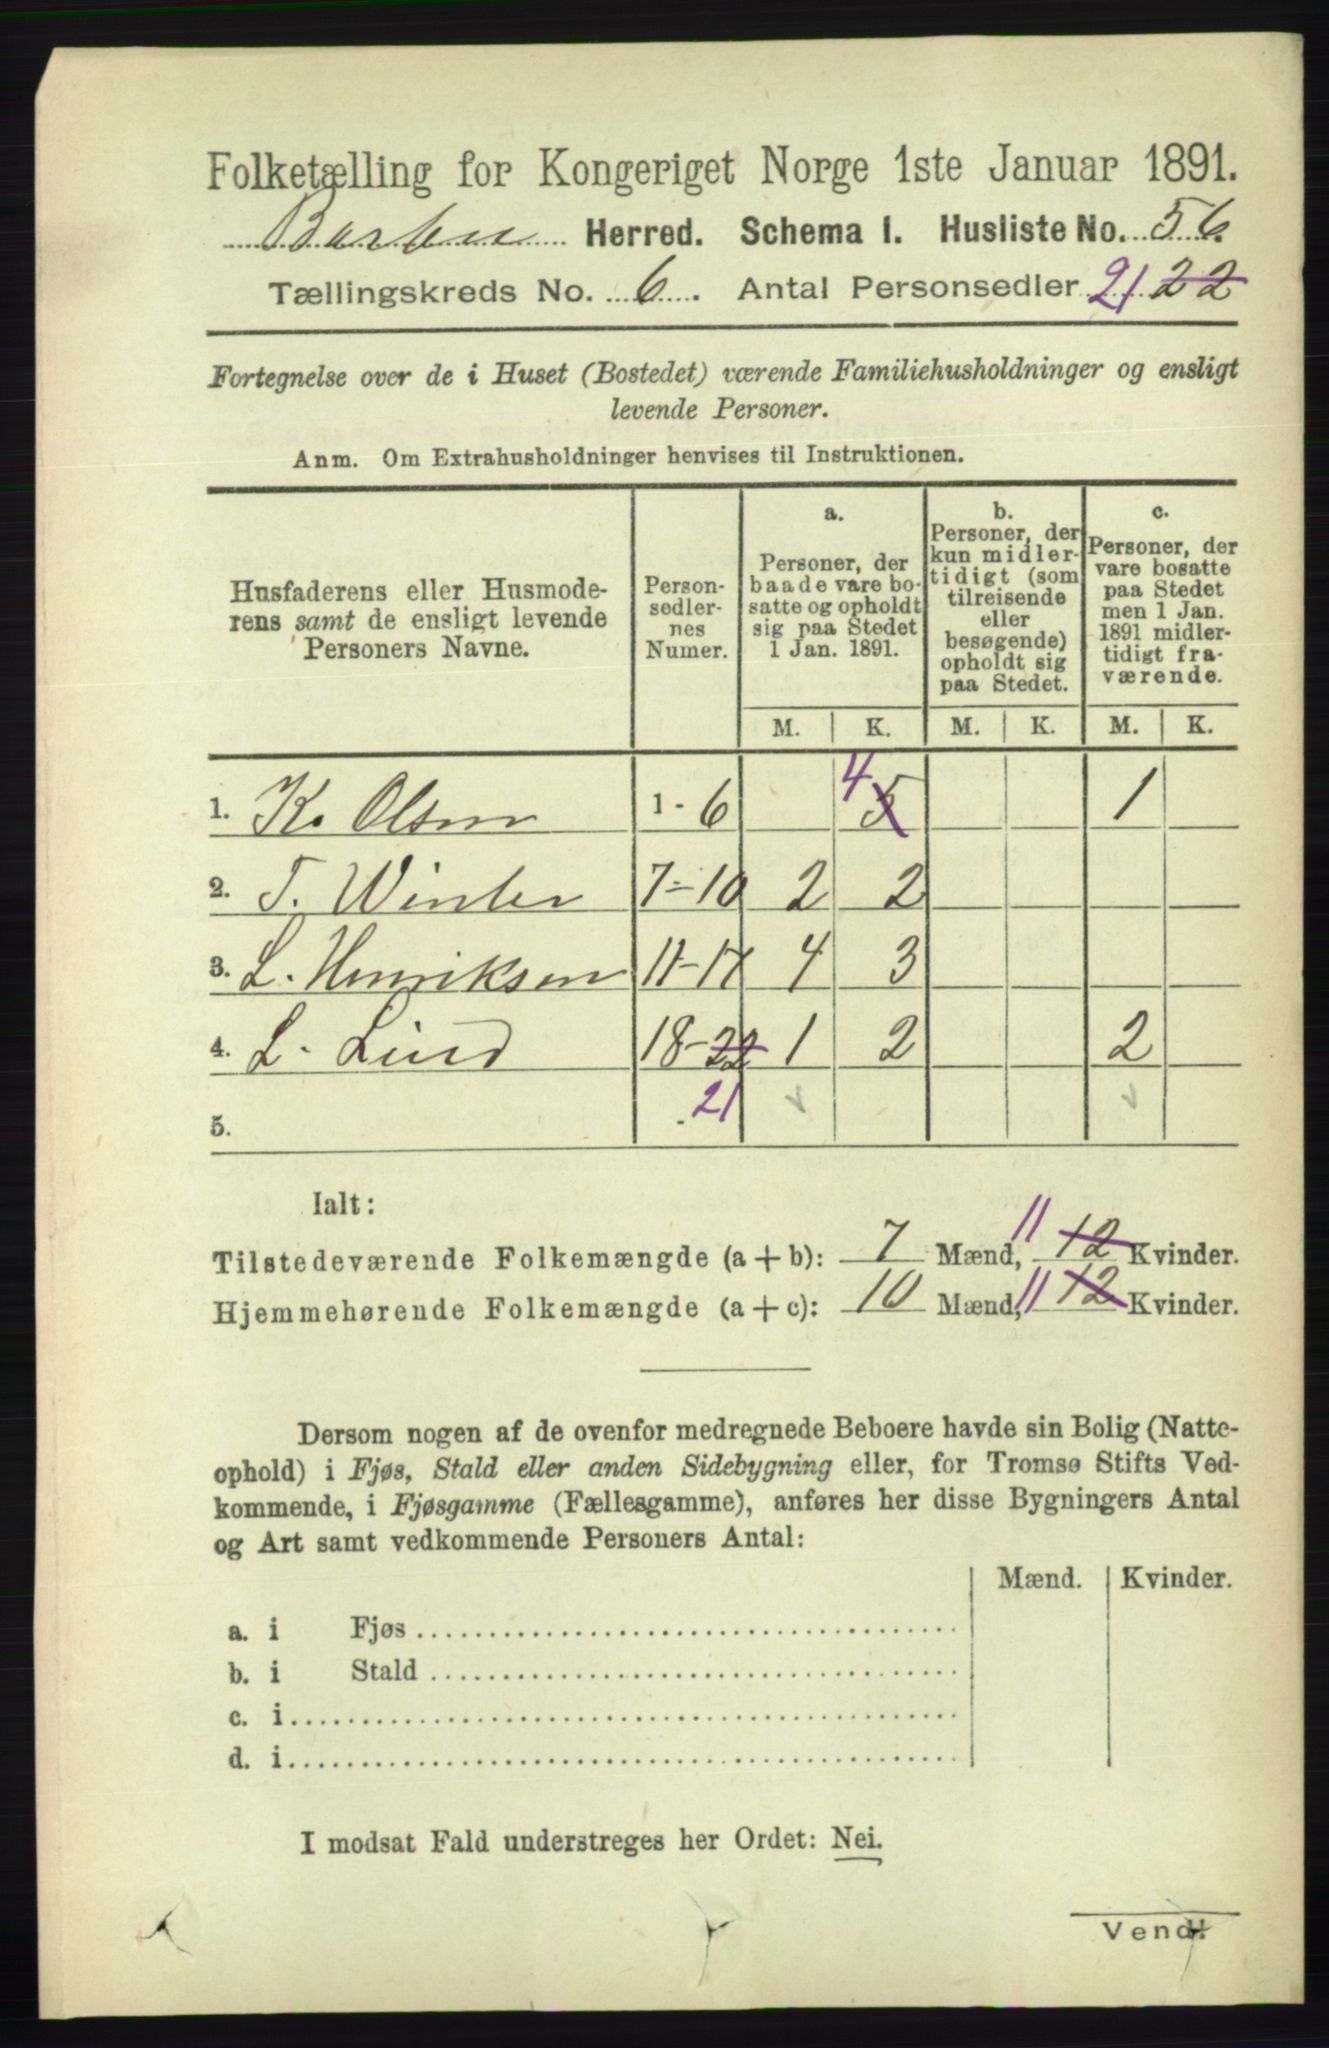 Folketælling for Kongeriget Norge 1ste Januar 1891.
Barbu Herred. Schema I. Husliste No. 56.
Tællingskreds No. 6. Antal Personsedler 21 22
Fortegnelse over de i Huset (Bostedet) værende Familiehusholdninger og ensligt
levende Personer.
Anm. Om Extrahusholdninger henvises til Instruktionen.
Husfaderens eller Husmode-
rens samt de ensligt levende
Personers Navne.
Person-
sedler-
nes
Numer.
a.
Personer, der
baade vare bo-
satte og opholdt
sig paa Stedet
1 Jan. 1891.
b.
Personer, der
kun midler-
tidigt (som
tilreisende
eller
besøgende)
opholdt sig
paa Stedet.
c.
Personer, der
vare bosatte
paa Stedet
men 1 Jan.
1891 midler-
tidigt fra-
værende.
M. K. M. K. M. K.
1. K. Olsen 1 - 6 4 5 1
2. T. Winter 7-10 2 2
3. L. Henriksen 11-17 4 3
4. L. Lind 18-22 1 2 2
21
5.
Ialt:
Tilstedeværende Folkemængde (a + b): 7 Mænd, 11 12 Kvinder.
Hjemmehørende Folkemængde (a + c): 10 Mænd, 11 12 Kvinder.
Dersom nogen af de ovenfor medregnede Beboere havde sin Bolig (Natte-
ophold) i Fjøs, Stald eller anden Sidebygning eller, for Tromsø Stifts Ved-
kommende, i Fjøsgamme (Fællesgamme), anføres her disse Bygningers Antal
og Art samt vedkommende Personers Antal:
Mænd. Kvinder.
a. i Fjøs
b. i Stald
c. i
d. i
I modsat Fald understreges her Ordet: Nei.
Vend!